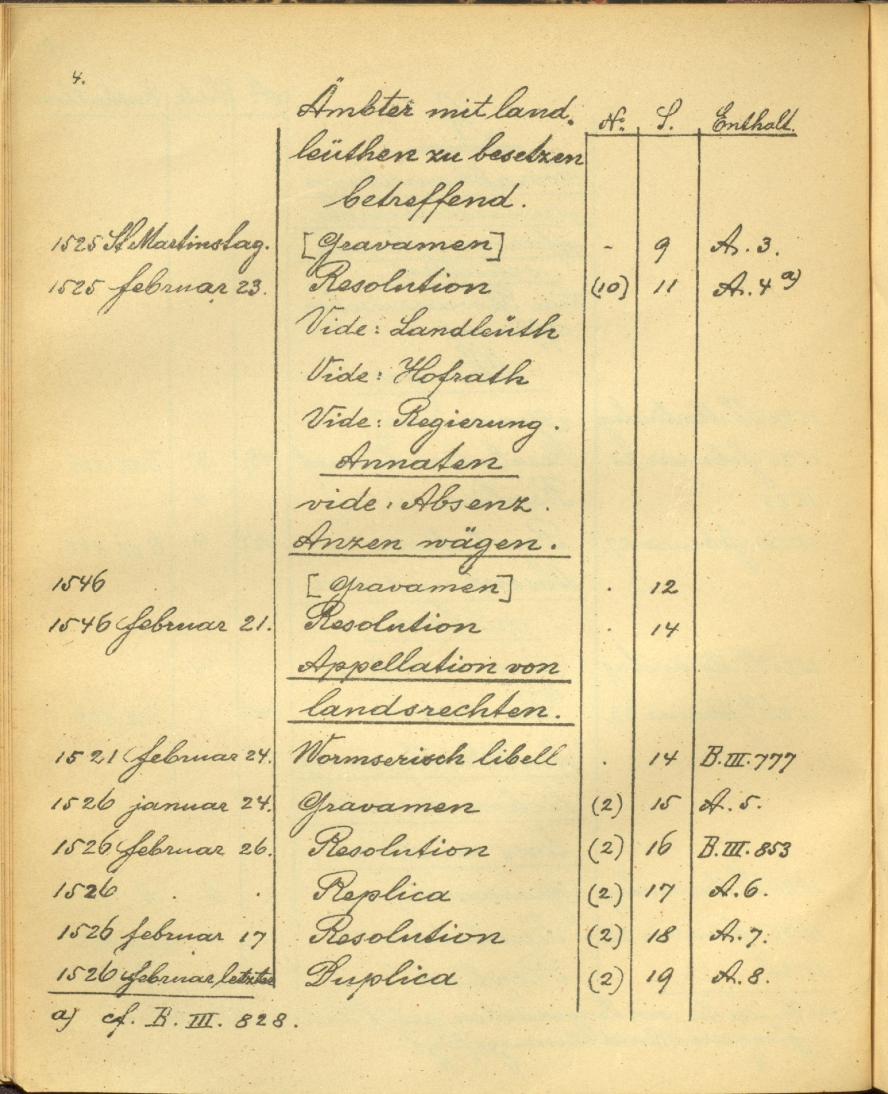 4.
Ämbter mit land-
N: S. Enthalt.
leüthen zu besetzen
betreffend.
1525 St Martinstag. [Gravamen] - 9 A. 3.
1525 februar 23. Resolution (10) 11 A. 4 a)
Vide: Landleüth
Vide: Hofrath
Vide: Regierung.
Annaten
vide: Absenz.
Anzen wägen.
1546 [Gravamen] . 12
1546 februar 21. Resolution . 14
Appellation von
landsrechten.
1521 februar 24. Wormserisch libell . 14 B. III. 777
1526 januar 24. Gravamen (2) 15 A. 5.
1526 februar 26. Resolution (2) 16 B. III. 853
1526 . . Replica (2) 17 A. 6.
1526 februar 17 Resolution (2) 18 A. 7.
1526 februar letzter Duplica (2) 19 A. 8.
a) cf. B. III. 828.